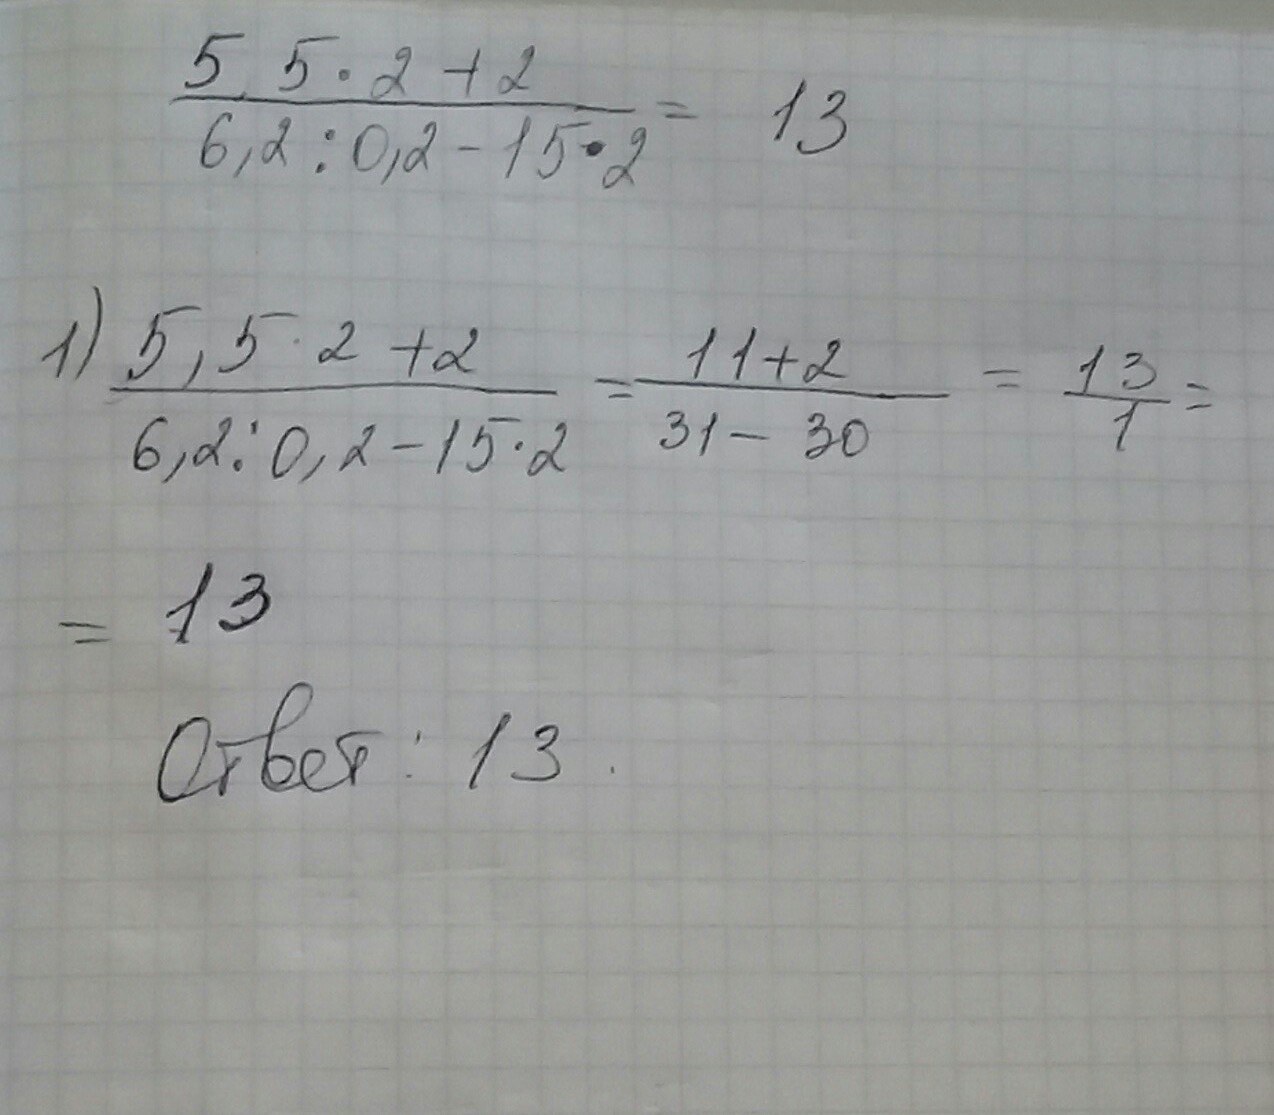 5,5·2+2
6,2:0,2-15·2 = 13
1) 5,5·2+2 / 6,2:0,2-15·2 = 11+2 / 31-30 = 13 / 1 =
= 13
Ответ: 13.